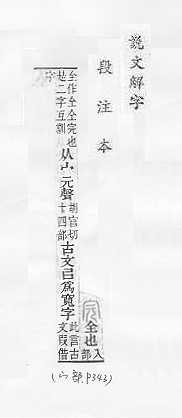 說文解字
段注本
全也入部
完也是二字互訓从宀元聲胡官切十四部古文㠯爲寬字此言古文叚借
字
(宀部 P343)